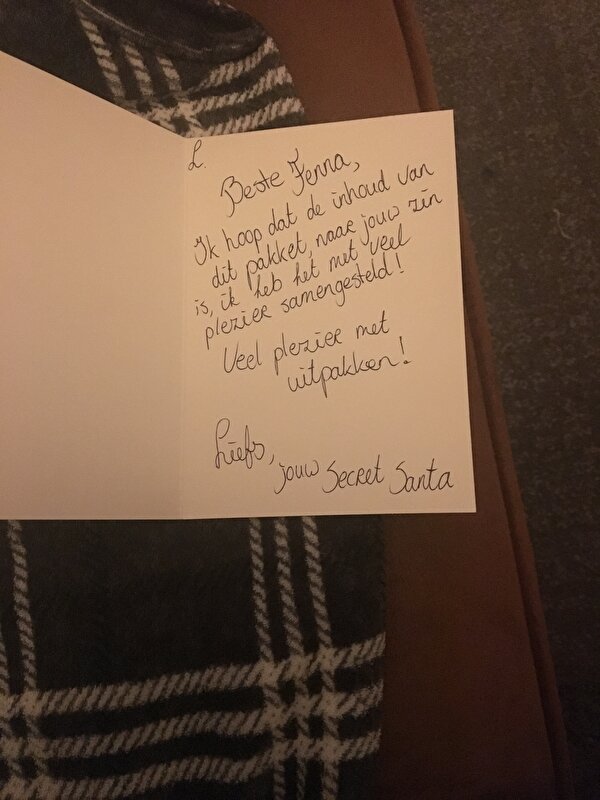 L.
Beste Fenna,
Ik hoop dat de inhoud van
dit pakket, naar jouw zin
is, ik heb het met veel
plezier samengesteld!
Veel plezier met
uitpakken!
Liefs,
jouw Secret Santa